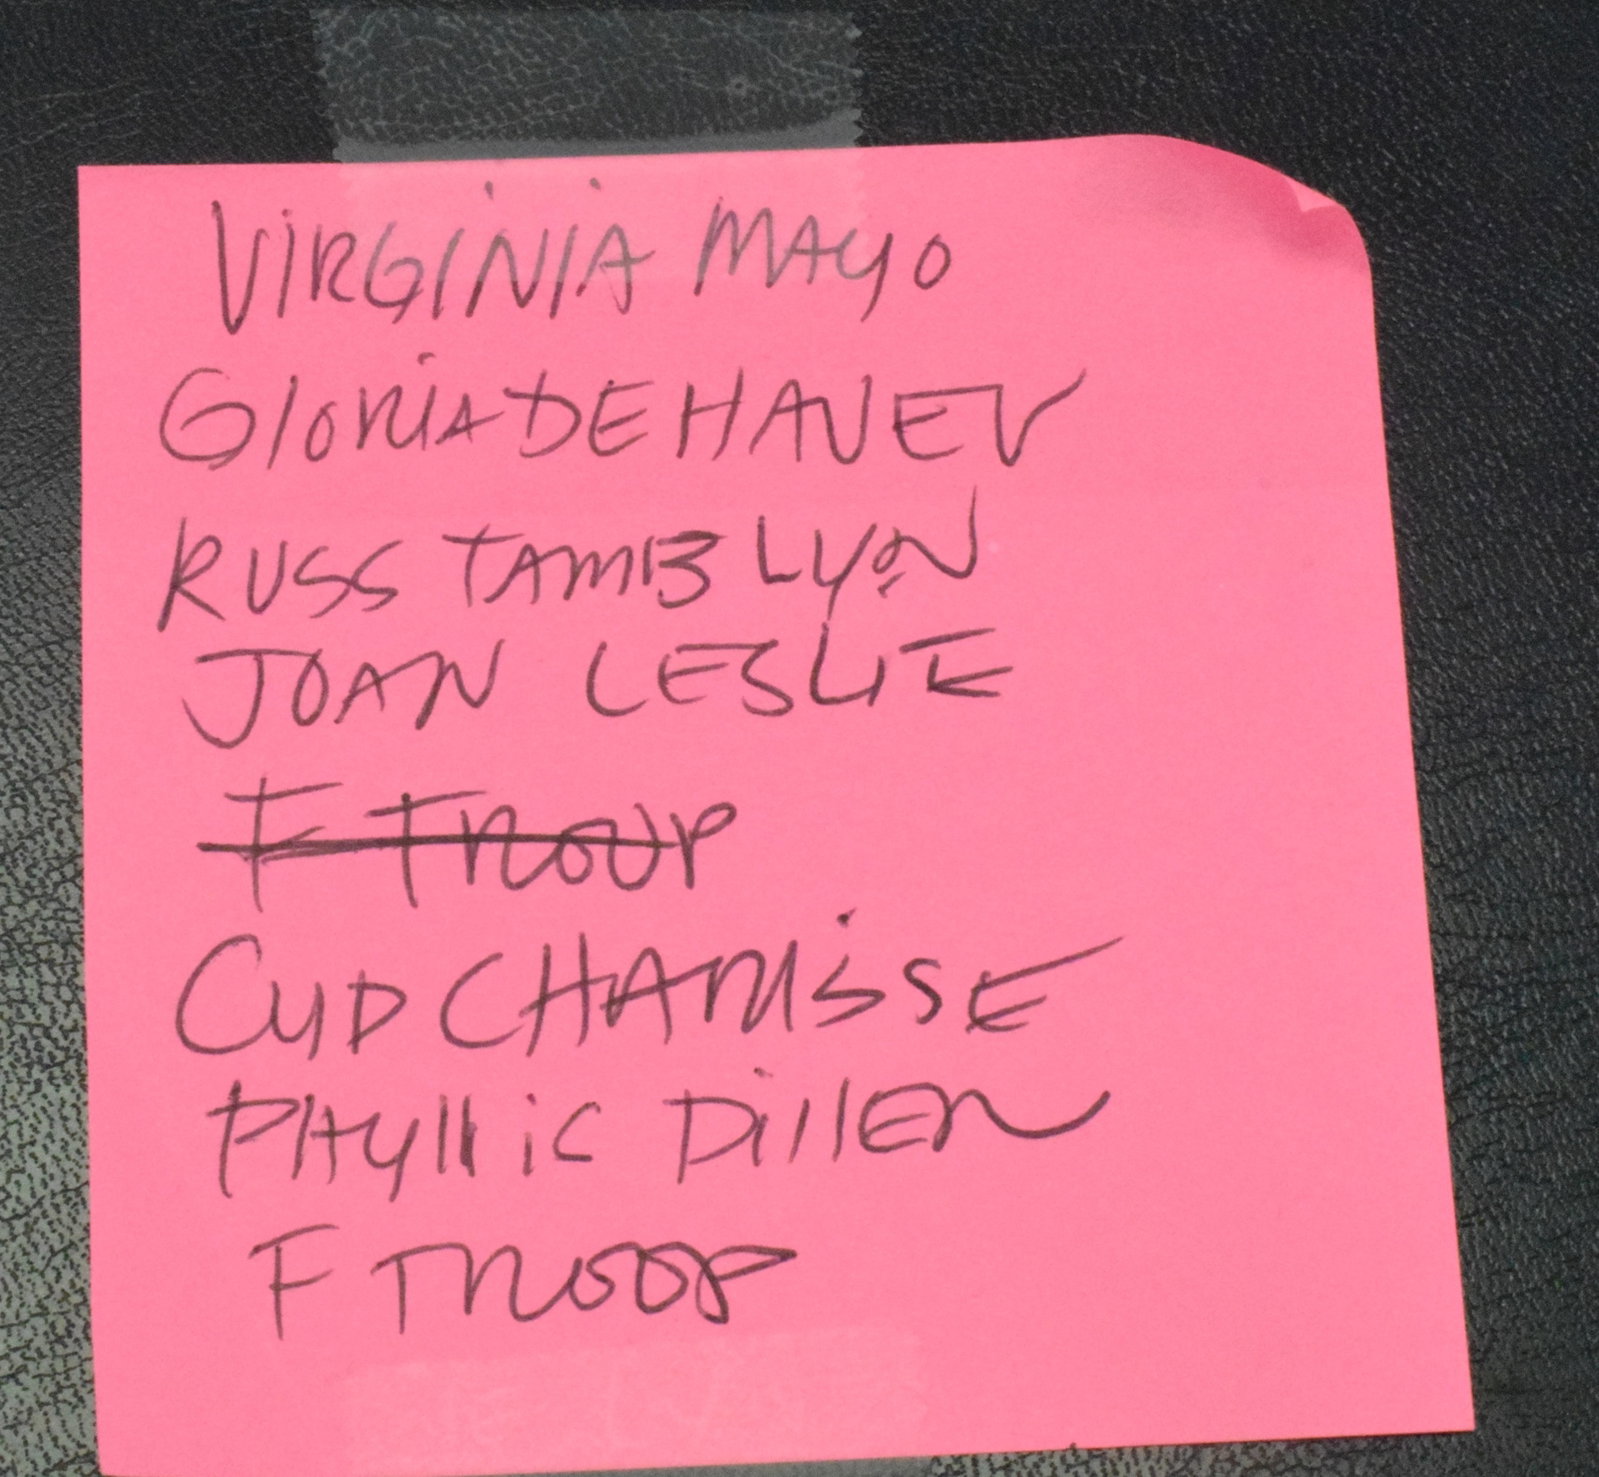 VIRGINIA MAYO
GloRiA DE HAVEN
RUSS TAMBLYN
JOAN LESLIE
F TROUP
CYD CHARISSE
PHyllis DillER
F TROOP